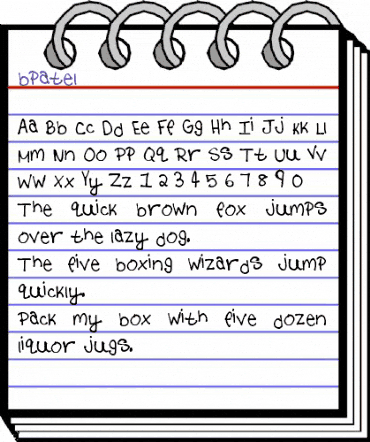 bpatel
Aa Bb Cc Dd Ee Ff Gg Hh Ii Jj KK Ll
Mm Nn Oo PP Qq Rr SS Tt Uu Vv
WW Xx Yy Zz 1 2 3 4 5 6 7 8 9 0
The quick brown fox jumps
over the lazy dog.
The five boxing wizards jump
quickly.
Pack my box with five dozen
liquor jugs.